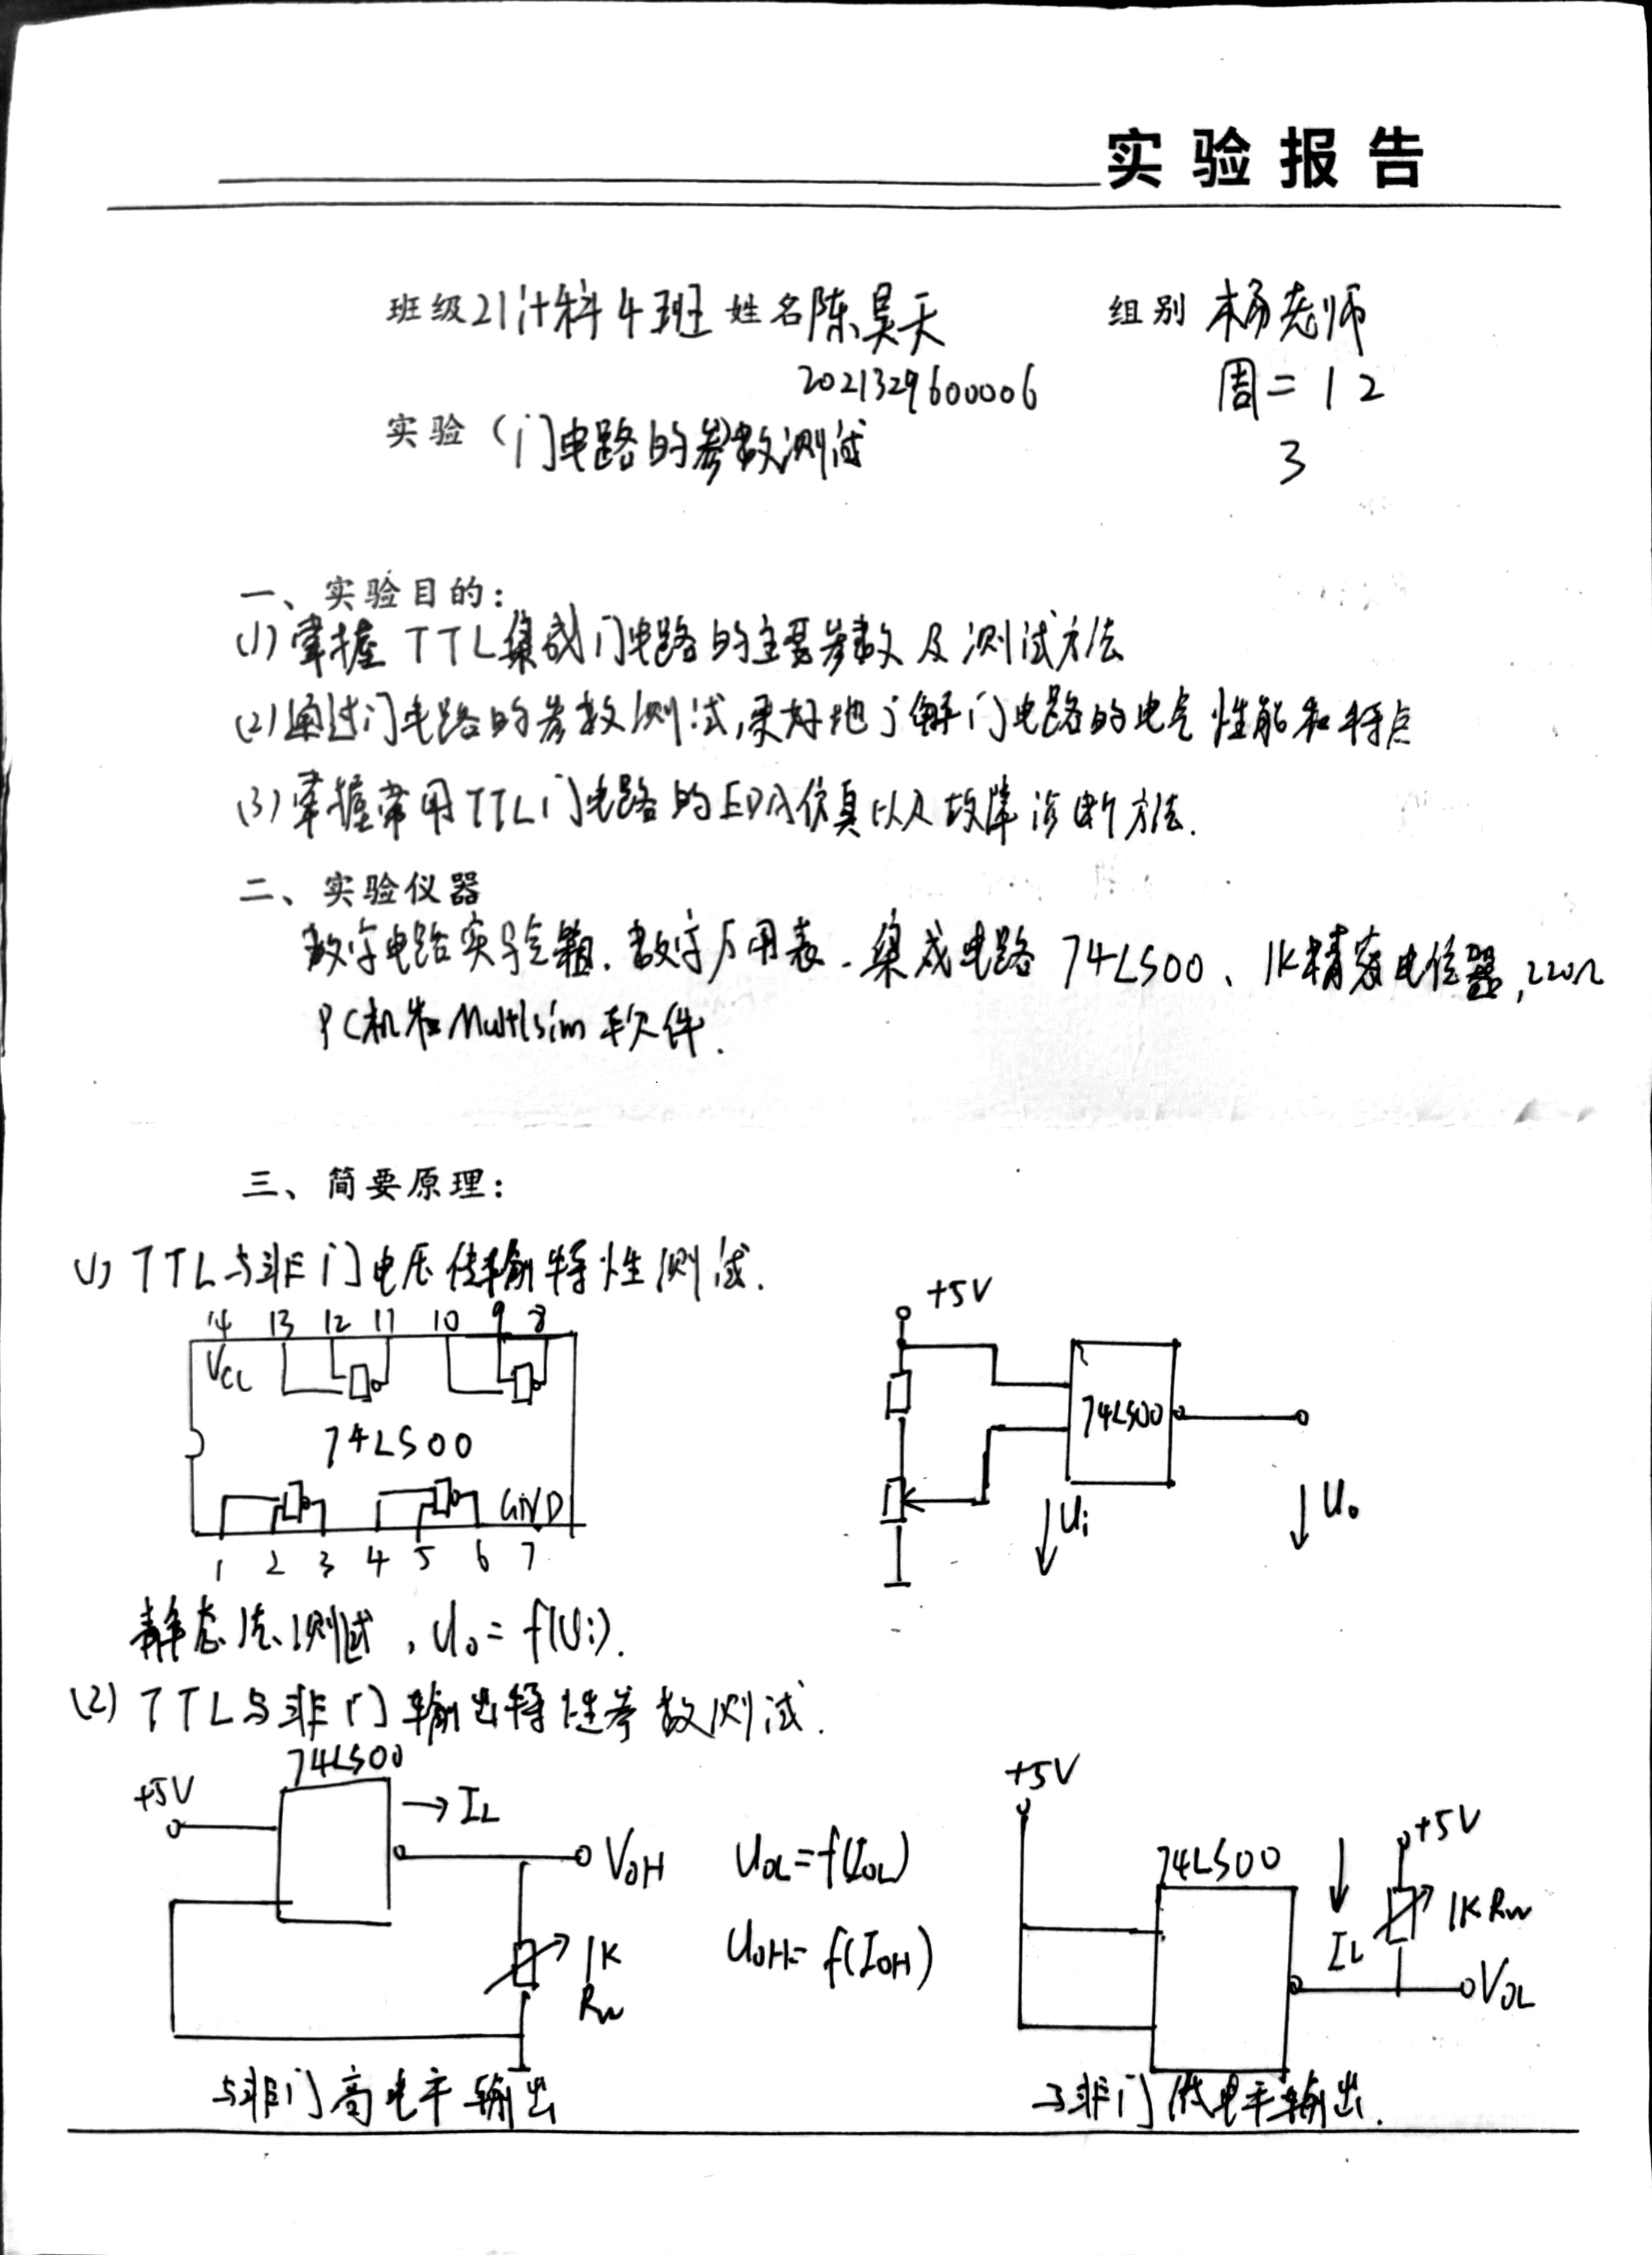 实验报告
班级 21计科4班 姓名 陈昊天 组别 杨老师
2021329600006 周二 1 2
实验（门电路的参数）测试 3
一、实验目的：
(1) 掌握 TTL集成门电路的主要参数及测试方法
(2) 通过门电路的参数测试,更好地了解门电路的电气性能和特点
(3) 掌握常用TTL门电路的EDA仿真以及故障诊断方法.
二、实验仪器
数字电路实验箱、数字万用表、集成电路 74LS00、1K精密电位器,220Ω
PC机和Multisim软件.
三、简要原理：
(1) TTL与非门电压传输特性测试.
14 13 12 11 10 9 8
VCC
74LS00
GND
1 2 3 4 5 6 7
+5V
74LS00
Ui
Uo
静态法测试，Uo=f(Ui).
(2) TTL与非门输出特性参数测试.
74LS00
+5V
→IL
VOH
1K
Rw
UOL=f(IOL)
UOH=f(IOH)
+5V
74LS00
+5V
IL
1K Rw
VOL
与非门高电平输出
与非门低电平输出.